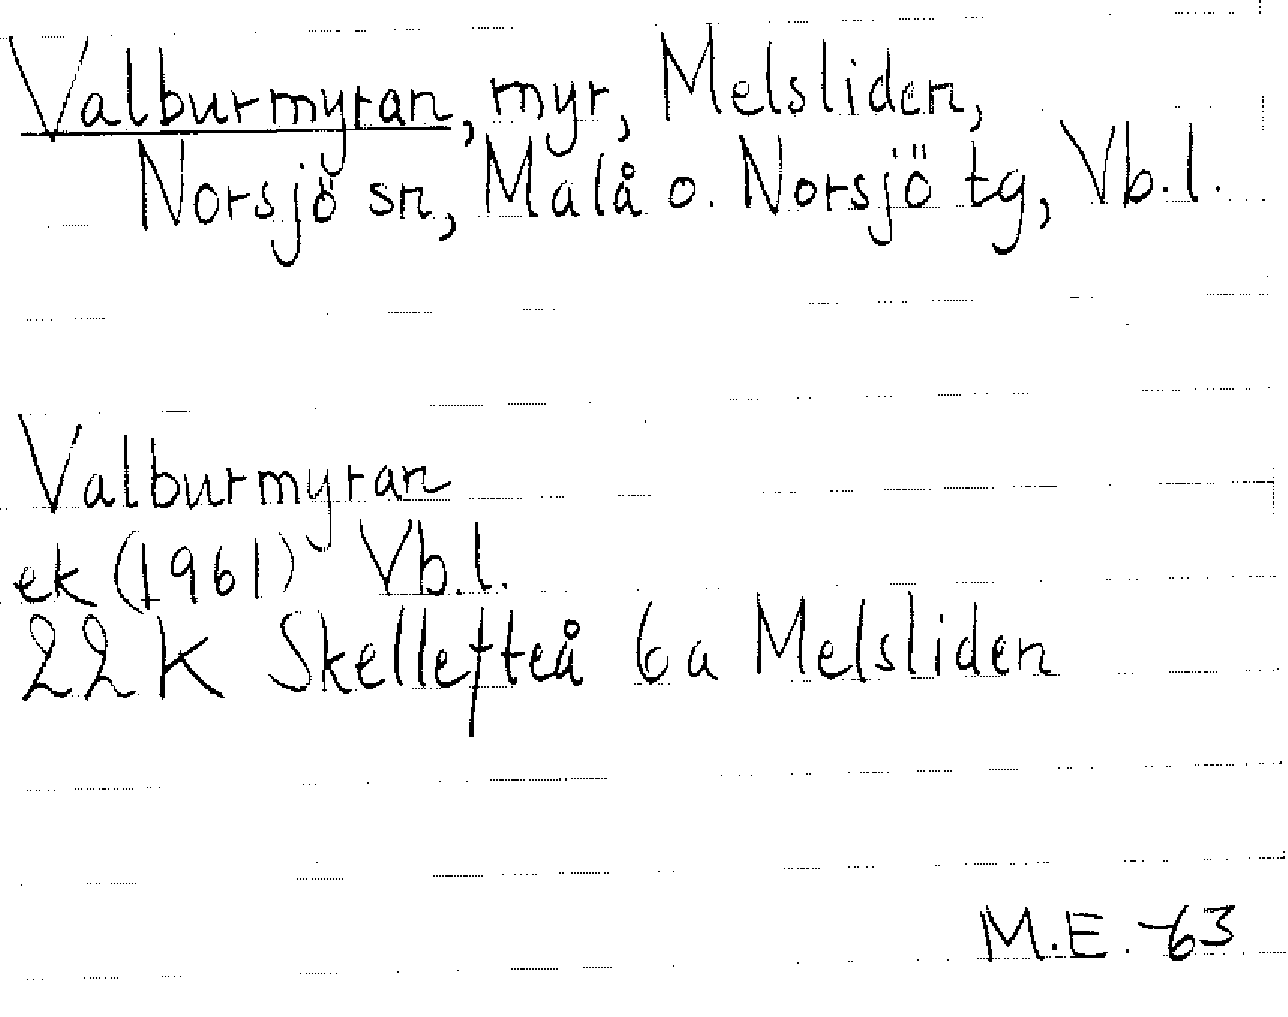 Valburmyran, myr, Melsliden,
Norsjö sn, Malå o. Norsjö tg, Vb.l.
Valburmyran
ek (1961) Vb.l.
22 K Skellefteå 6a Melsliden
M.E. -63